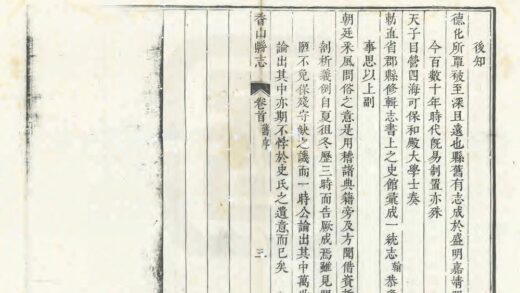 後知
德化所覃被至深且遠也縣舊有志成於盛明嘉靖
今百數十年時代旣易制置亦殊
天子目營四海可保和殿大學士奏
勅直省郡縣修輯志書上之史館彙成一統志翰恭
事思以上副
朝廷采風問俗之意是用稽諸典籍旁及方聞借資
剖析義例自夏徂冬歷三時而告厥成焉雖見
不免保殘守缺之譏而一時公論出其中萬
論出其中亦期不悖於史氏之遺意而已矣
香山縣志 卷首 舊序 三